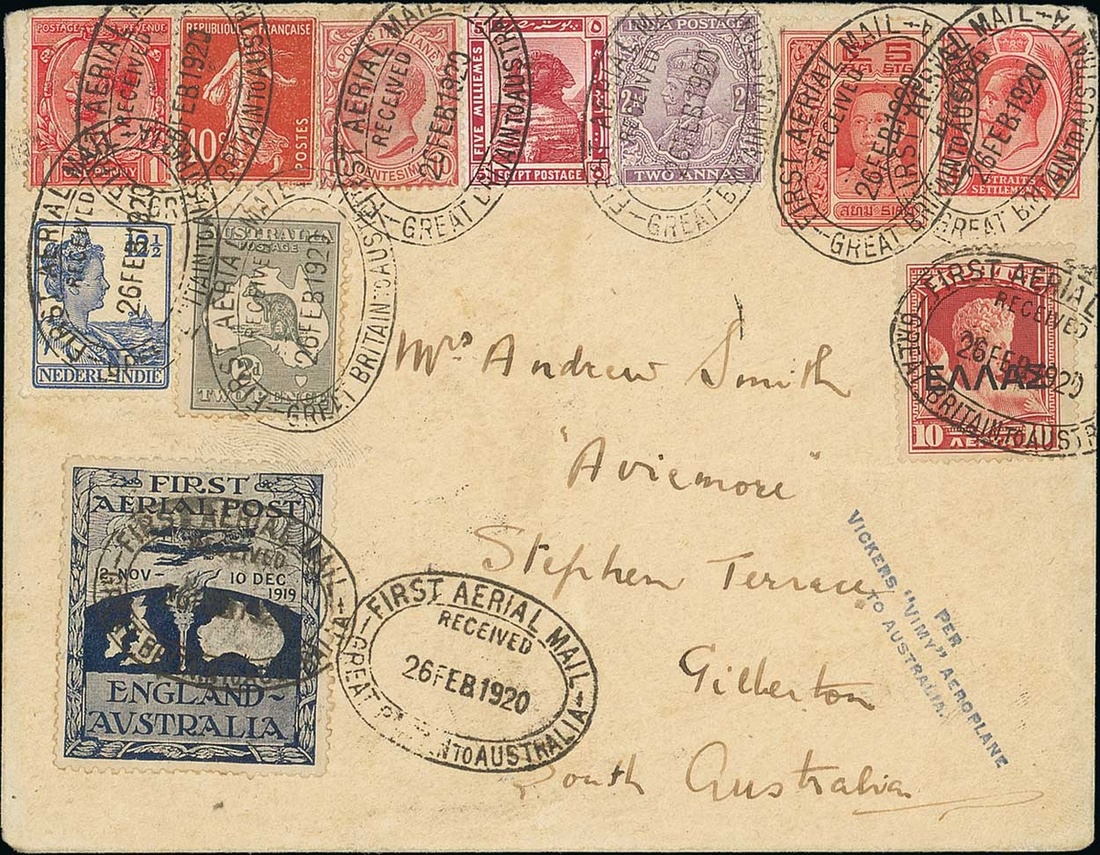 POSTAGE REVENUE
PENNY
RÉPUBLIQUE FRANÇAISE
10c
POSTES
POSTE ITALIANE
CENTESIMI
FIVE MILLIEMES
EGYPT POSTAGE
INDIA POSTAGE
2A 2A
TWO ANNAS
5
สยาม SIAM
STRAITS SETTLEMENTS
FIRST AERIAL MAIL
RECEIVED
26 FEB 1920
GREAT BRITAIN TO AUSTRALIA
12½
NEDERL·INDIE
AUSTRALIA
POSTAGE
2d
TWO PENCE
ΕΛΛΑΣ
10 ΛΕΠΤΑ 10
Mrs Andrew Smith
"Aviemore"
Stephen Terrace
Gilberton
South Australia
PER
VICKERS "VIMY" AEROPLANE
TO AUSTRALIA.
FIRST
AERIAL POST
12 NOV - 10 DEC
1919
ENGLAND-
AUSTRALIA
FIRST AERIAL MAIL
RECEIVED
26 FEB 1920
GREAT BRITAIN TO AUSTRALIA